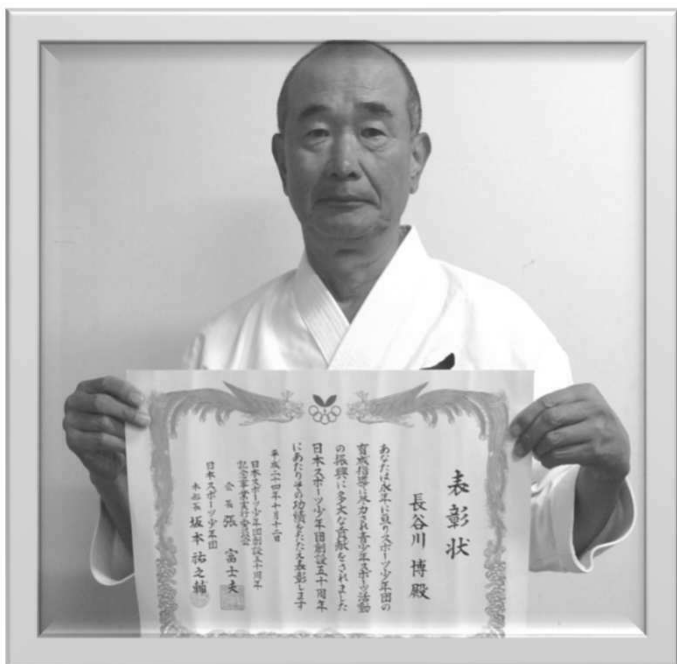 表彰状
長谷川 博 殿
あなたは永年に亘りスポーツ少年団の
育成指導に尽力され青少年スポーツ活動
の振興に多大な貢献をされました
日本スポーツ少年団創設五十周年
にあたりその功績をたたえ表彰します
平成二十四年十月十二日
日本スポーツ少年団創設五十周年
記念事業実行委員会
会長 張 富士夫
日本スポーツ少年団
本部長 坂本祐之輔